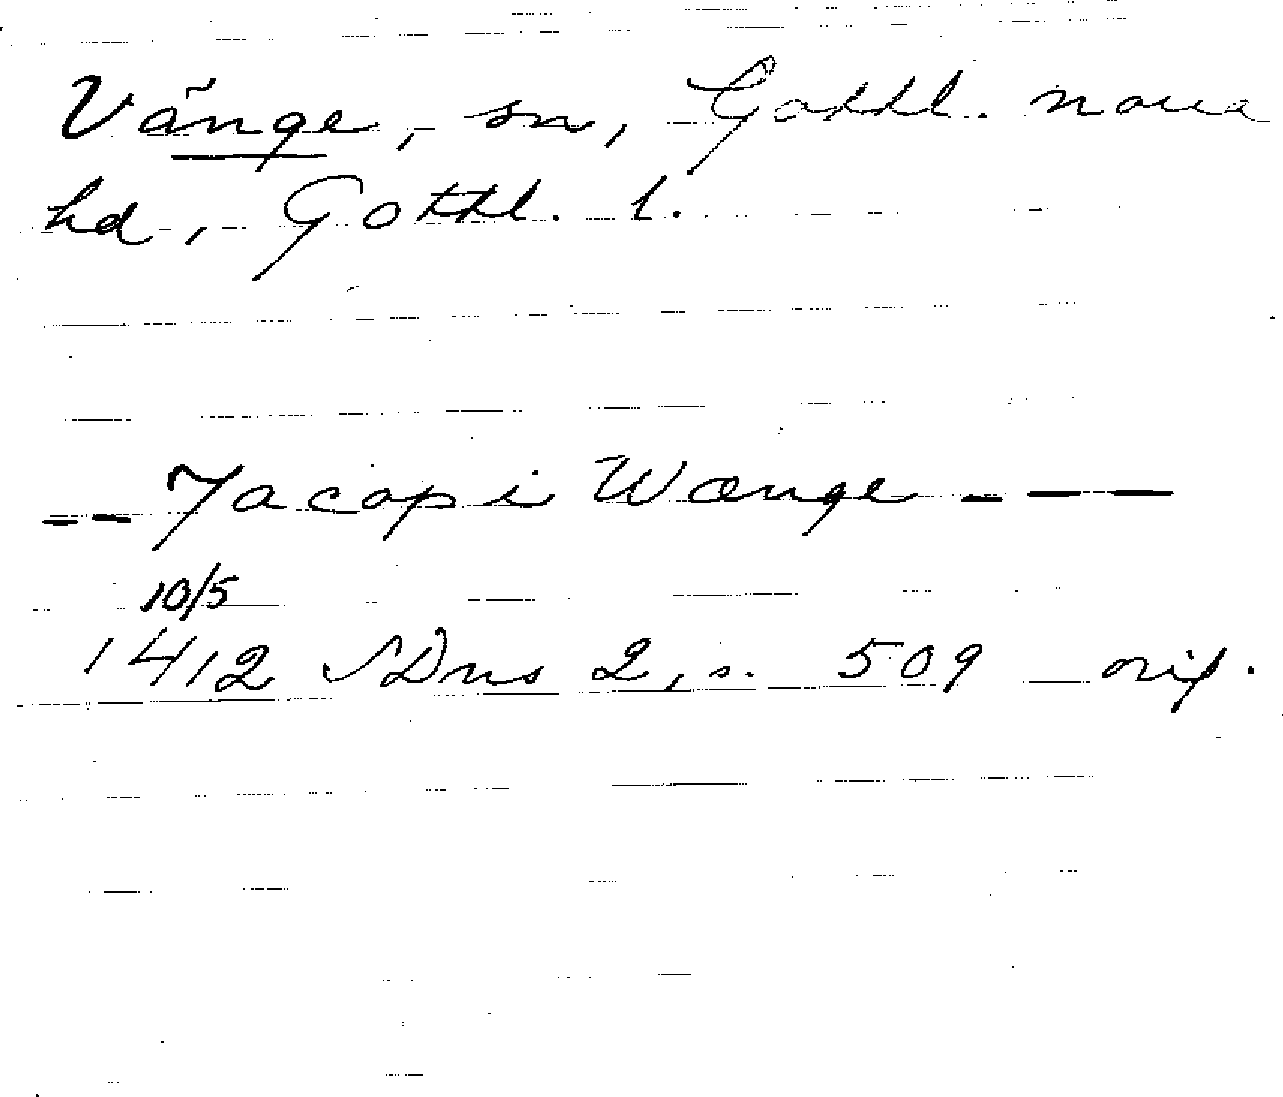 Vänge, sn, Gottl. norra
hd, Gottl. l.
-- Jacopi Wænge ---
10/5
1412 SDns 2, s. 509 orig.